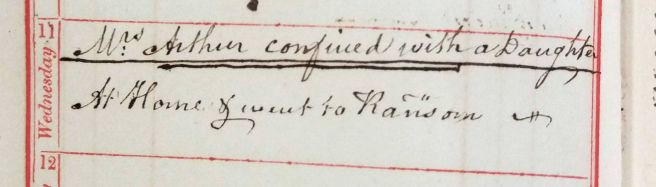 11
Wednesday
Mrs Arthur confined with a Daughter
At Home & went to Ransom
12